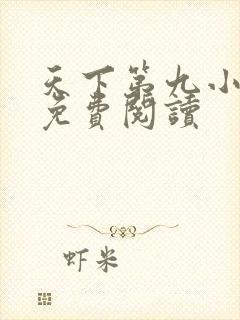 天下第九小
免費閱讀
虾米